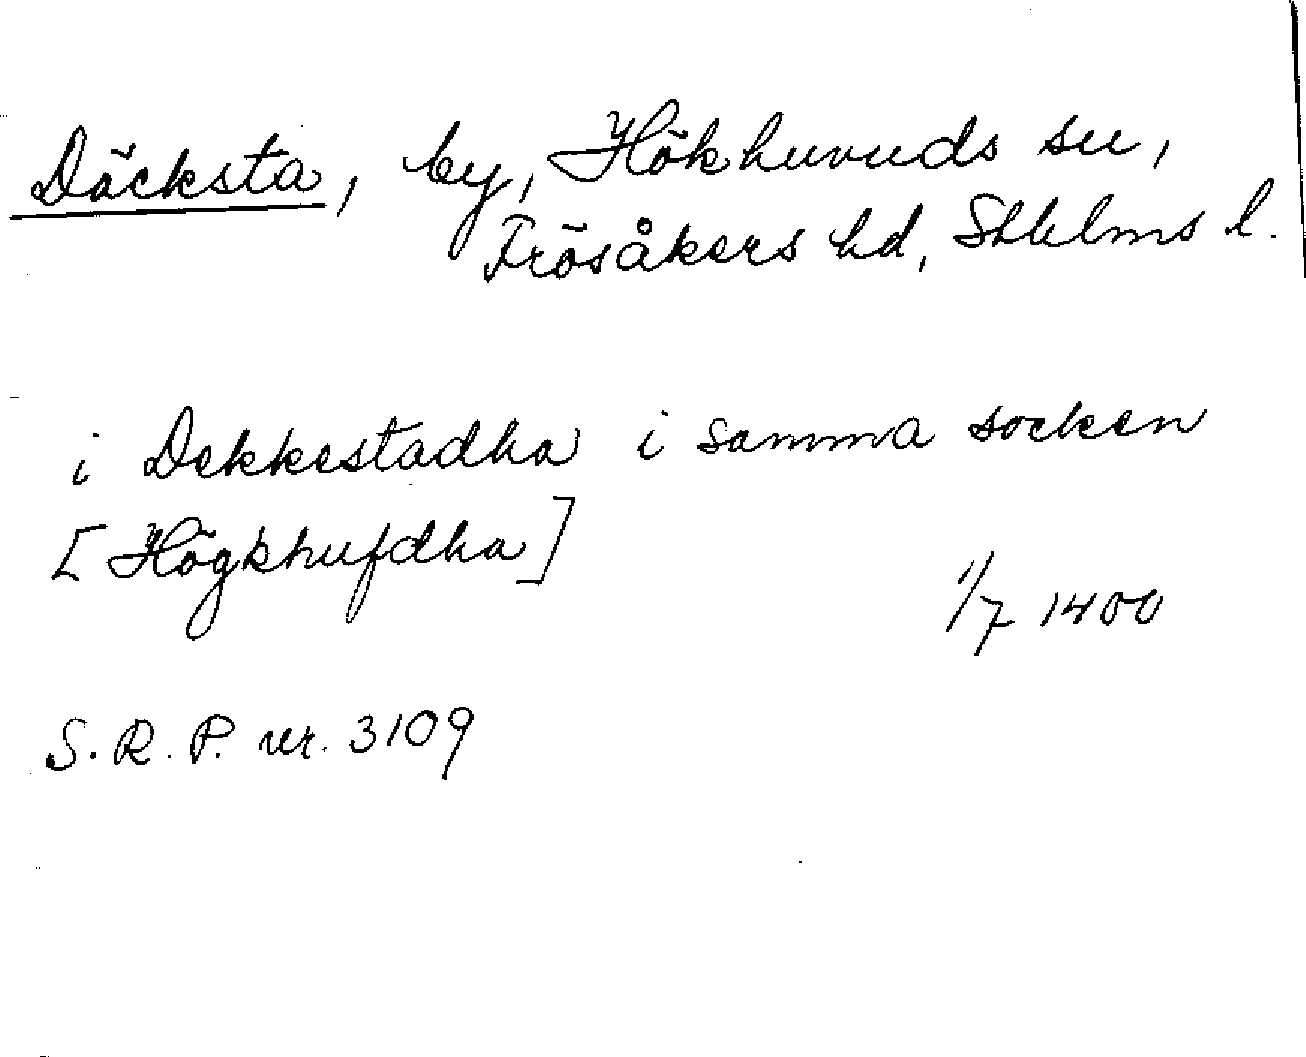 Däcksta, by, Hökhuvuds sn,
Frösåkers hd, Sthlms l.
i Dekkestadha i samma socken
[Högkhufdha]
1/7 1400
S. R. P. nr. 3109